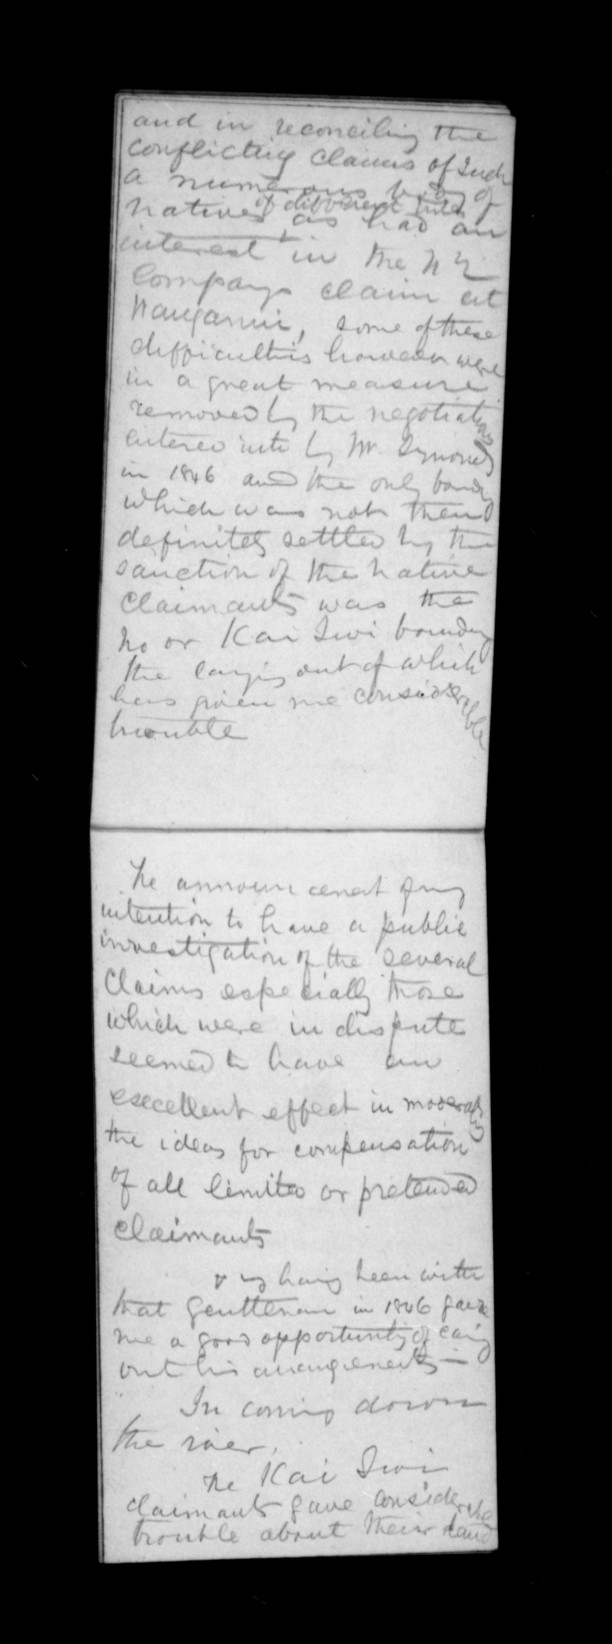 and in reconciling the
conflicting claims of such
a numerous body of
of different tribes
natives as had an
interest in the N Z
Companys claim at
Wanganui, some of these
difficulties however were
in a great measure
removed by the negotiations
entered into by Mr. Symonds
in 1846 and the only boundy
which was not then
definitely settled by the
sanction of the native
claimants was the
No or Kai Iwi boundy
the carying out of which
has given me considerable
trouble
The announcement of my
intention to have a public
investigation of the several
Claims especially those
which were in dispute
seemed to have an
excellent effect in moderating
the ideas for compensation
of all limited or pretended
claimants
& my having been with
that Gentleman in 1846 gave
me a good opportunity of carying
out his arrangements —
In coming down
the river.
The Kai Iwi
claimants gave considerable
trouble about their land